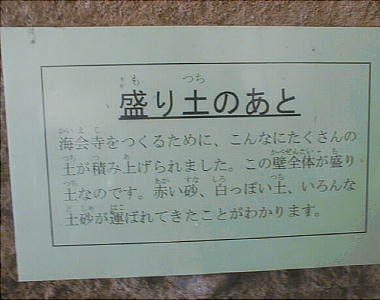 盛り土のあと
海会寺をつくるために、こんなにたくさんの
土が積み上げられました。この壁全体が盛り
土なのです。赤い砂、白っぽい土、いろんな
土砂が運ばれてきたことがわかります。